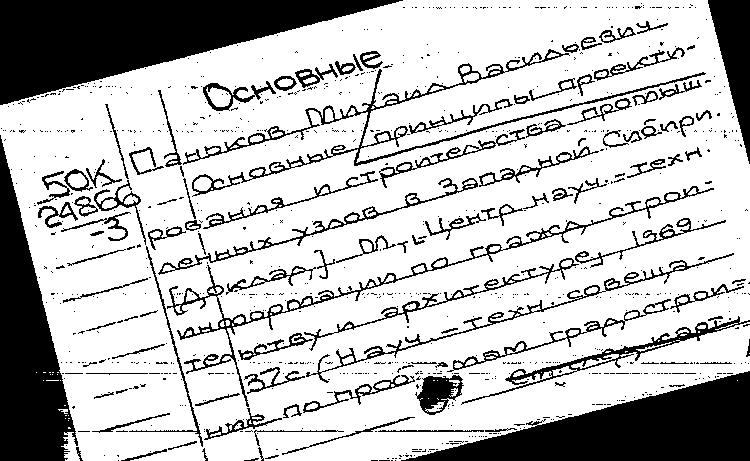 Основные
50К
24866
-3
Паньков, Михаил Васильевич
Основные принципы проекти-
рования и строительства промыш-
ленных узлов в Западной Сибири.
[Доклад.] М., "Центр науч.-техн.
информации по гражд. строи-
тельству и архитектуре", 1969.
37с. (Науч.-техн. совеща-
ние по проблемам градострои-
См. след. карт.